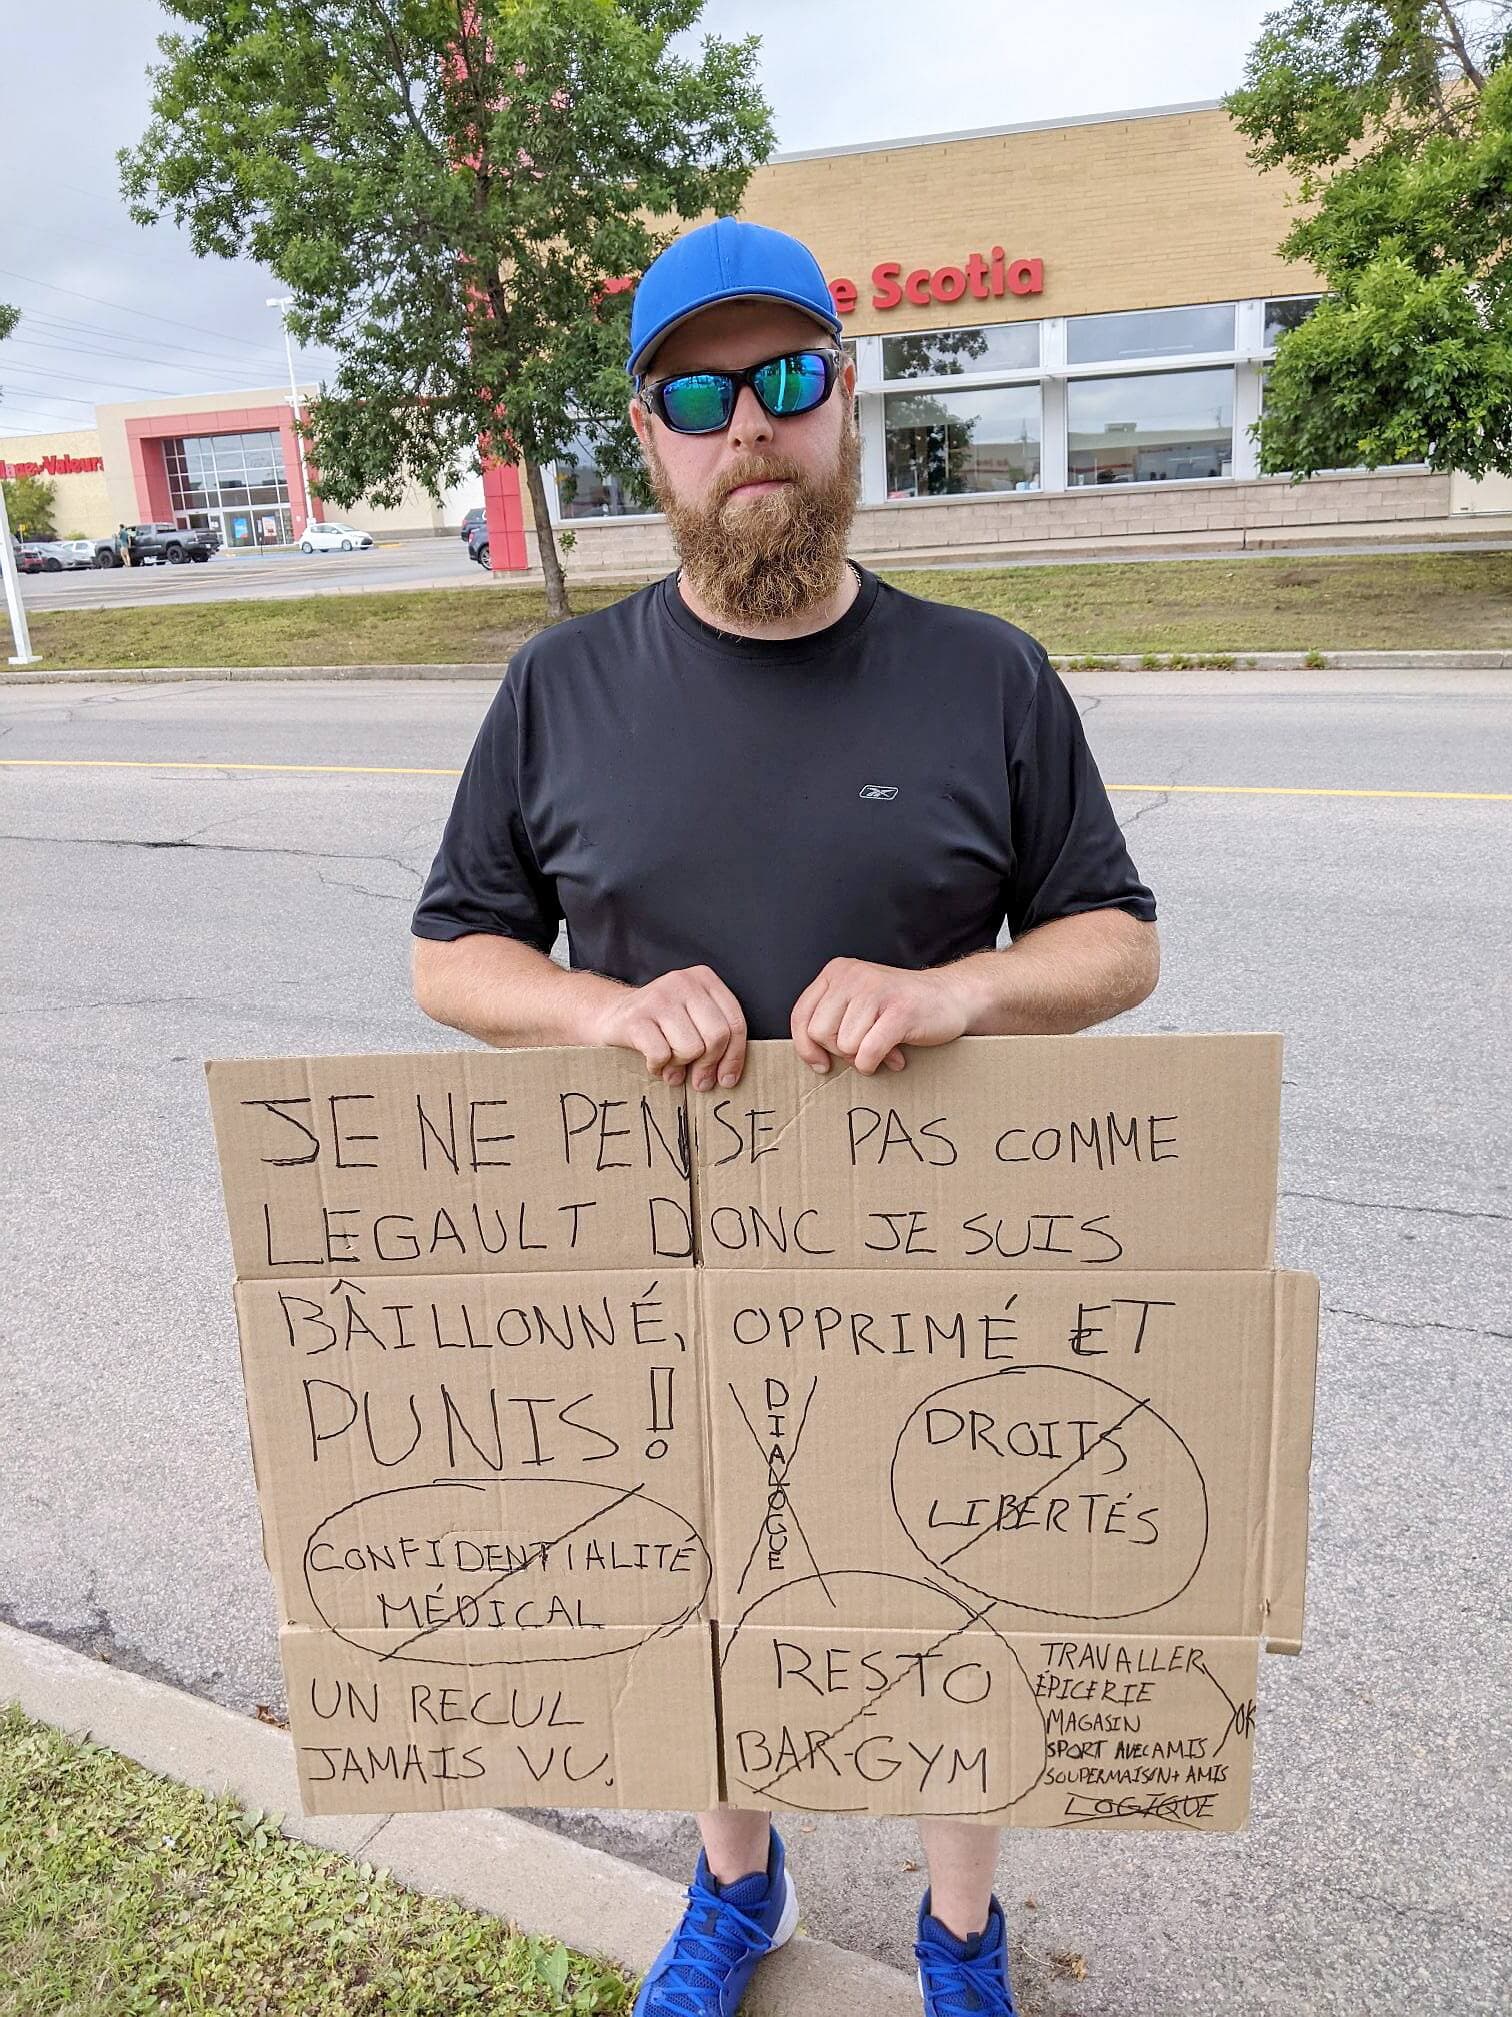 e Scotia
lage-Valeurs
JE NE PENSE PAS COMME
LEGAULT DONC JE SUIS
BÂILLONNÉ, OPPRIMÉ ET
PUNIS!
DIALOGUE
DROITS
LIBERTÉS
CONFIDENTIALITÉ
MÉDICAL
UN RECUL
JAMAIS VU.
RESTO
BAR-GYM
TRAVALLER
ÉPICERIE
MAGASIN
SPORT AVEC AMIS
SOUPER MAISON + AMIS
OK
LOGIQUE